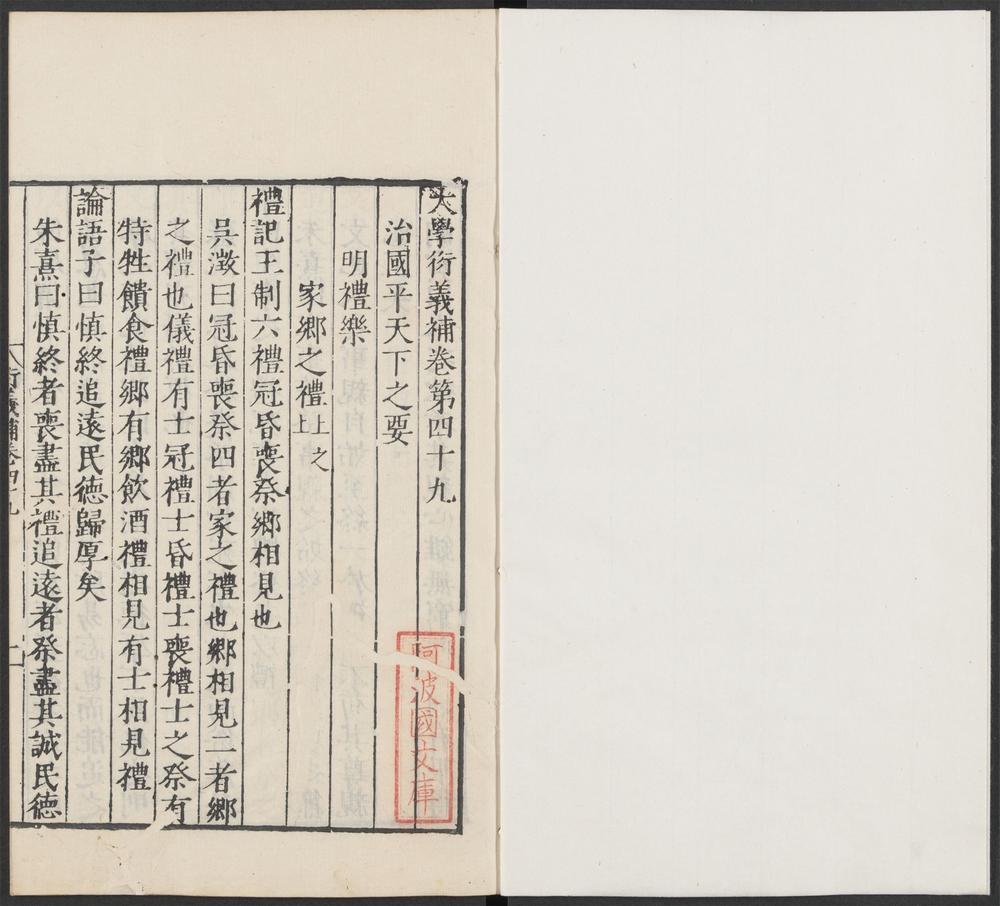 大學衍義補卷第四十九
治國平天下之要
明禮樂
家鄉之禮上之上
禮記王制六禮冠昏喪祭鄉相見也
吳澂曰冠昏喪祭四者家之禮也鄉相見二者鄉
之禮也儀禮有士冠禮士昏禮士喪禮士之祭有
特牲饋食禮鄉有鄉飲酒禮相見有士相見禮
論語子曰慎終追遠民德歸厚矣
朱熹曰慎終者喪盡其禮追遠者祭盡其誠民德
衍義補卷四十九
一
阿波國文庫